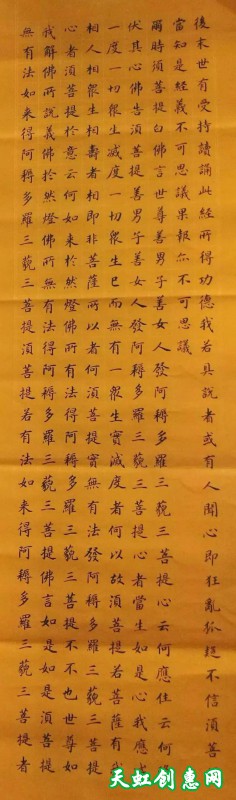 後末世有受持讀誦此經所得功德我若具說者或有人聞心即狂亂狐疑不信須菩
當知是經義不可思議果報尒不可思議
爾時須菩提白佛言世尊善男子善女人發阿耨多羅三藐三菩提心云何應住云何
伏其心佛告須菩提善男子善女人發阿耨多羅三藐三菩提心者當生如是心我應
一度一切眾生滅度一切眾生已而無有一眾生實滅度者何以故須菩提若菩薩有我
相人相眾生相壽者相即非菩薩所以者何須菩提實無有法發阿耨多羅三藐三菩提
心者須菩提於意云何如來於然燈佛所有法得阿耨多羅三藐三菩提不不也世尊如
我解佛所說義佛於然燈佛所無有法得阿耨多羅三藐三菩提佛言如是如是須菩提
無有法如來得阿耨多羅三藐三菩提須菩提若有法如來得阿耨多羅三藐三菩提者
天虹创惠网